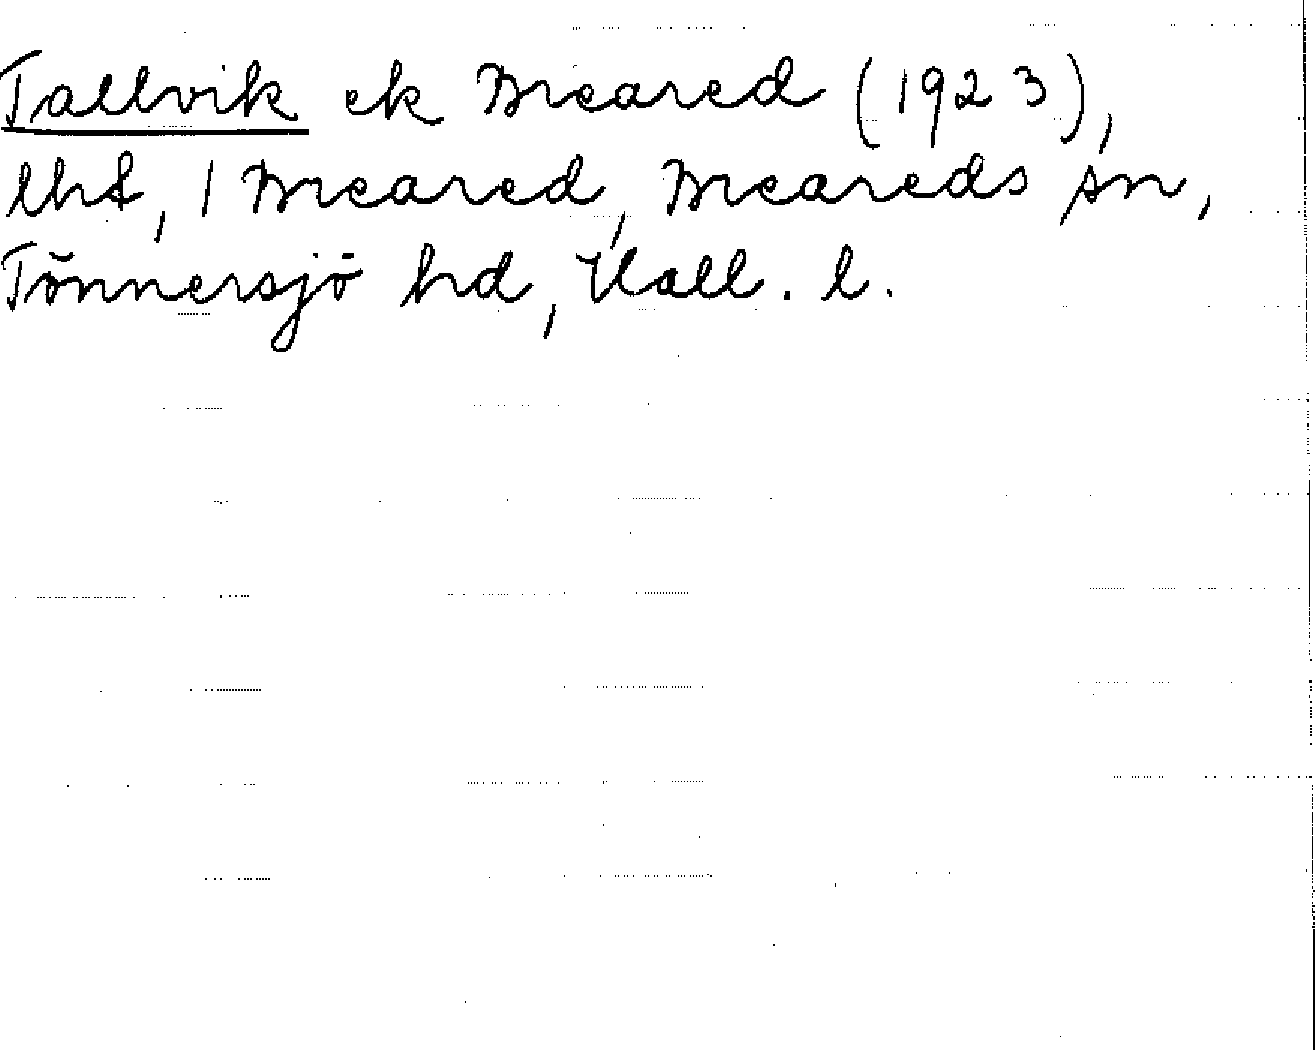 Tallvik ek Breared (1923),
lht, 1 Breared, Breareds sn,
Tönnersjö hd, Hall. l.